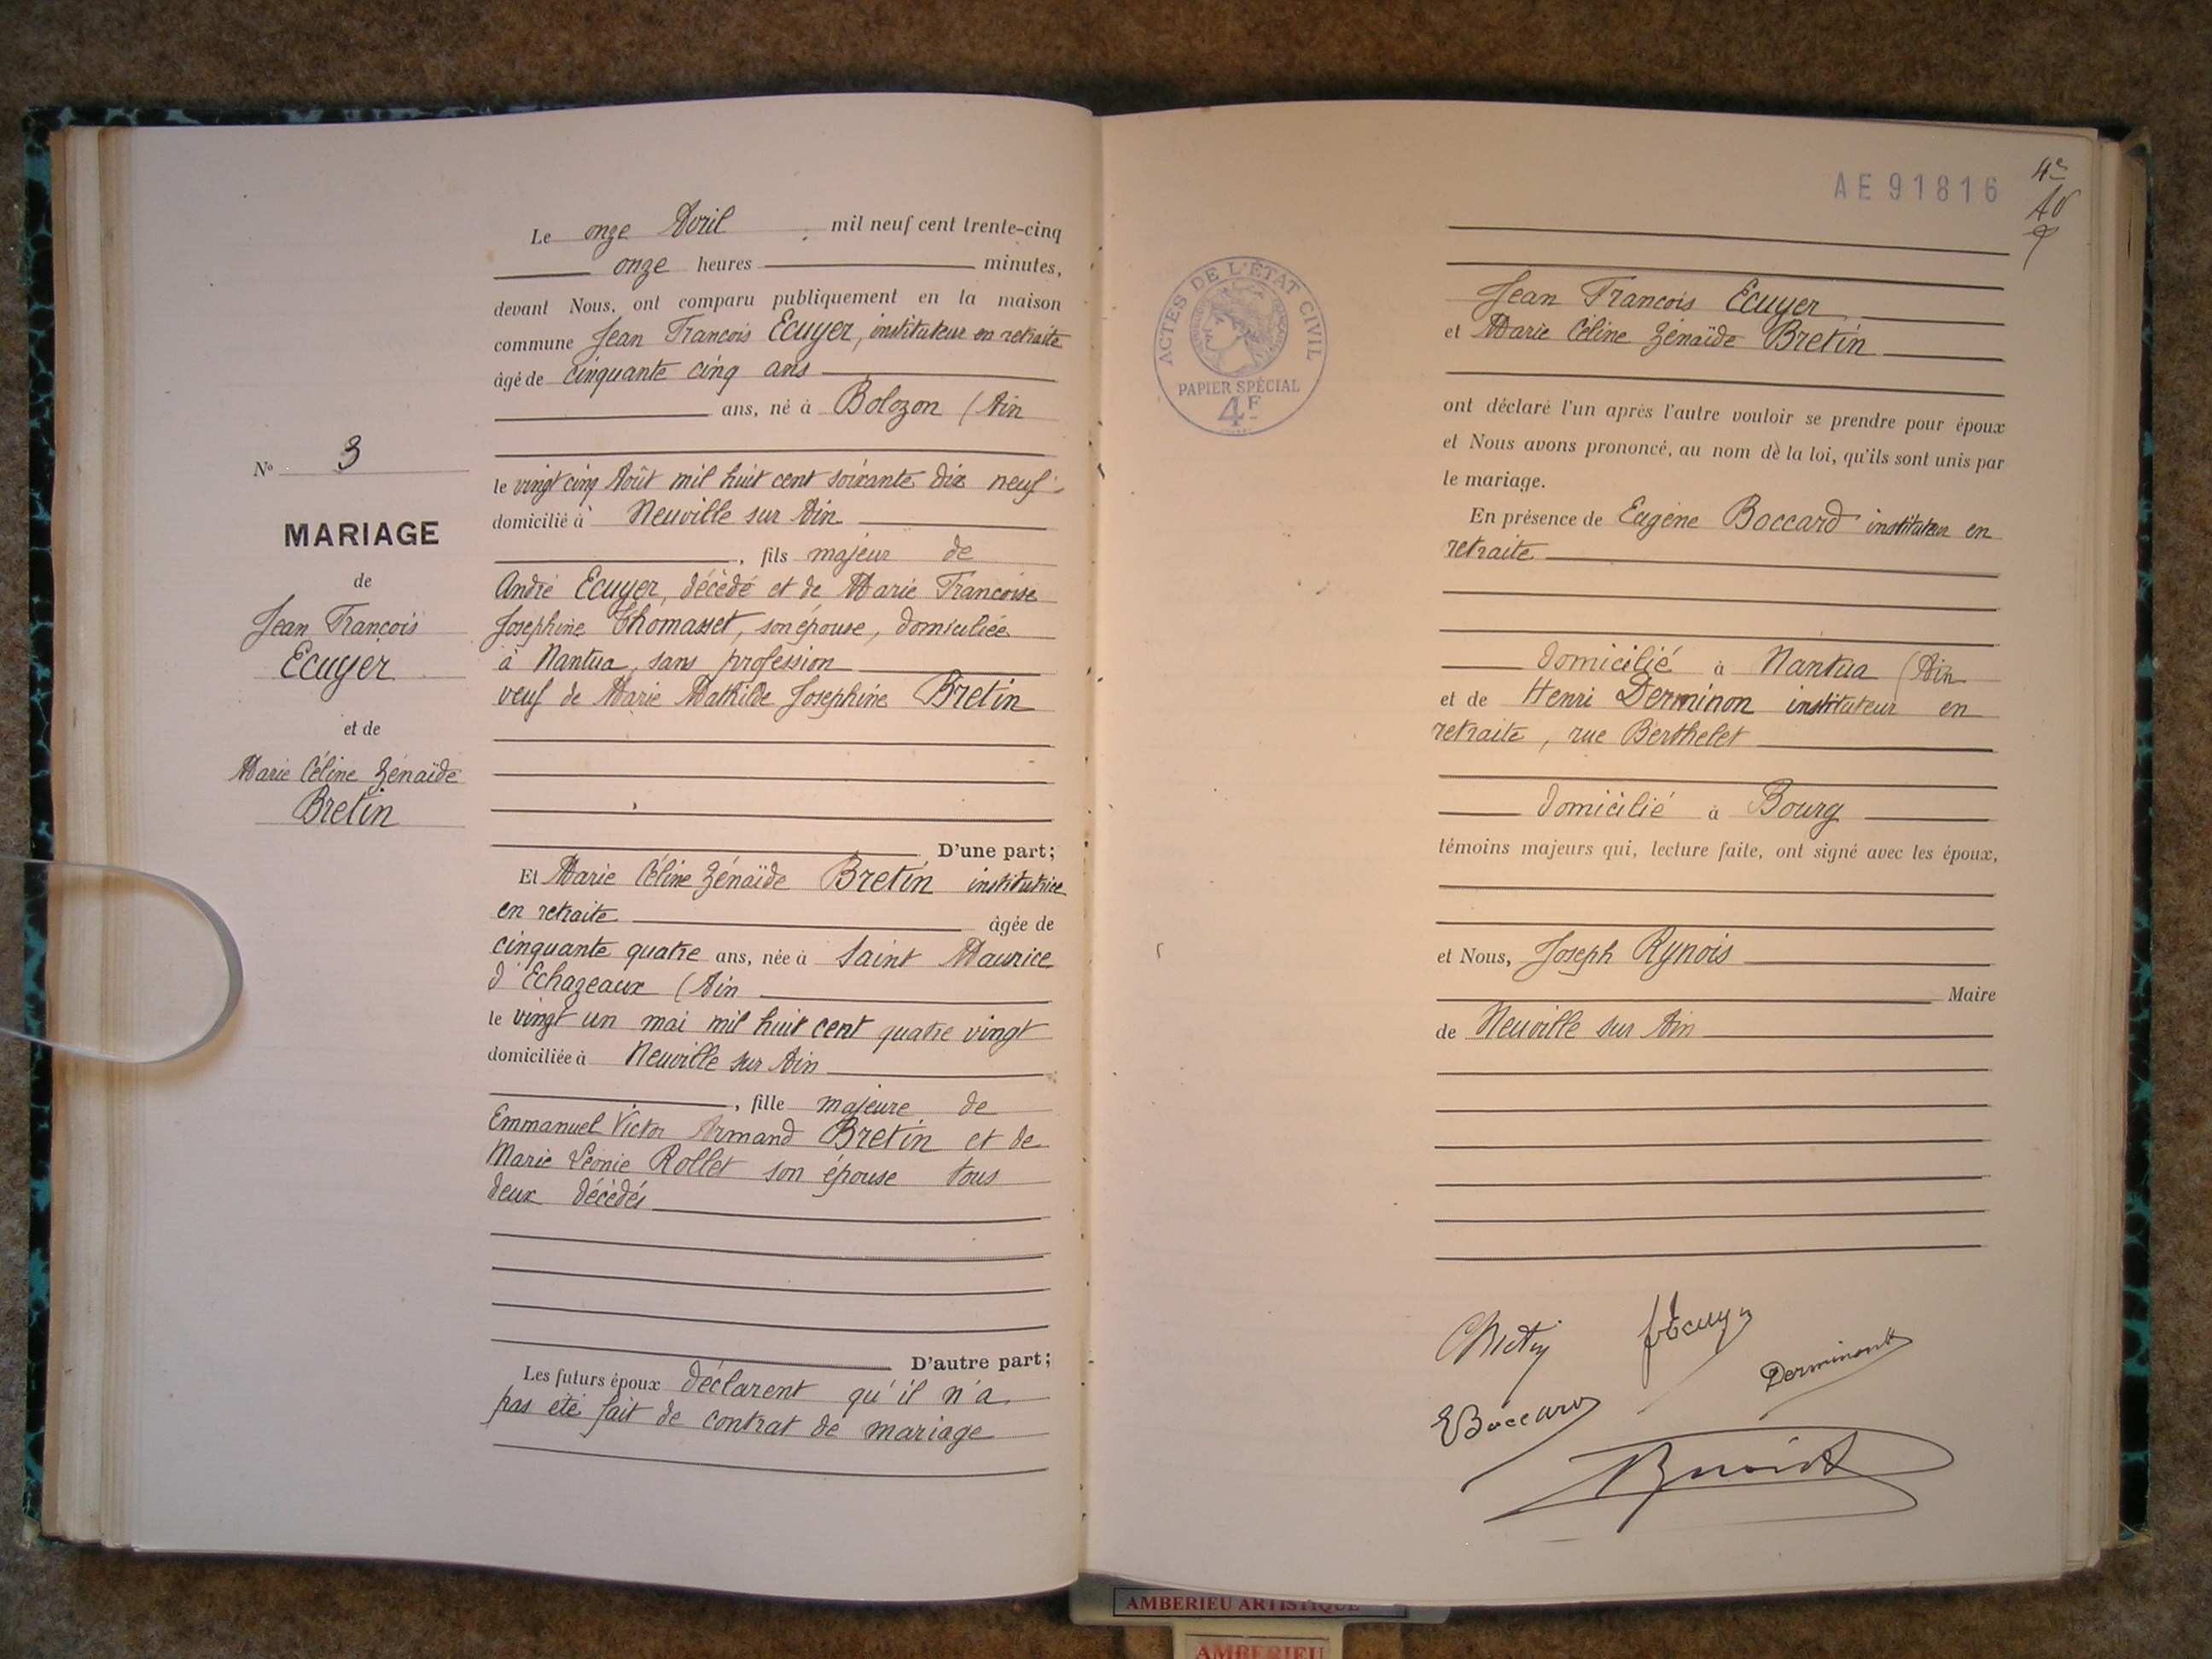 Le onze Avril mil neuf cent trente-cinq
onze heures minutes,
devant Nous, ont comparu publiquement en la maison
commune Jean François Ecuyer, instituteur en retraite
âgé de cinquante cinq ans
ans, né à Bolozon (Ain
le vingt cinq Août mil huit cent soixante dix neuf
domicilié à Neuville sur Ain
, fils majeur de
André Ecuyer, décédé et de Marie Francoise
Josephine Thomasset, son épouse, domiciliée
à Nantua, sans profession
veuf de Marie Mathilde Josephine Bretin
D'une part;
Et Marie Céline Zénaïde Bretin institutrice
en retraite âgée de
cinquante quatre ans, née à Saint Maurice
d'Echazeaux (Ain
le vingt un mai mil huit cent quatre vingt
domiciliée à Neuville sur Ain
, fille majeure de
Emmanuel Victor Armand Bretin et de
Marie Léonie Rollet son épouse tous
deux décédés
D'autre part;
Les futurs époux déclarent qu'il n'a
pas été fait de contrat de mariage
N° 3
MARIAGE
de
Jean François
Ecuyer
et de
Marie Céline Zénaïde
Bretin
AE 91816
4e
ACTES DE L'ÉTAT CIVIL
PAPIER SPÉCIAL
4F
Jean Francois Ecuyer
et Marie Céline Zénaïde Bretin
ont déclaré l'un après l'autre vouloir se prendre pour époux
et Nous avons prononcé, au nom de la loi, qu'ils sont unis par
le mariage.
En présence de Eugène Boccard instituteur en
retraite
domicilié à Nantua (Ain
et de Henri Derminon instituteur en
retraite, rue Berthelet
domicilié à Bourg
témoins majeurs qui, lecture faite, ont signé avec les époux,
et Nous, Joseph Rynois
Maire
de Neuville sur Ain
EBoccard
Derminon
AMBERIEU ARTISTIQUE
AMBERIEU